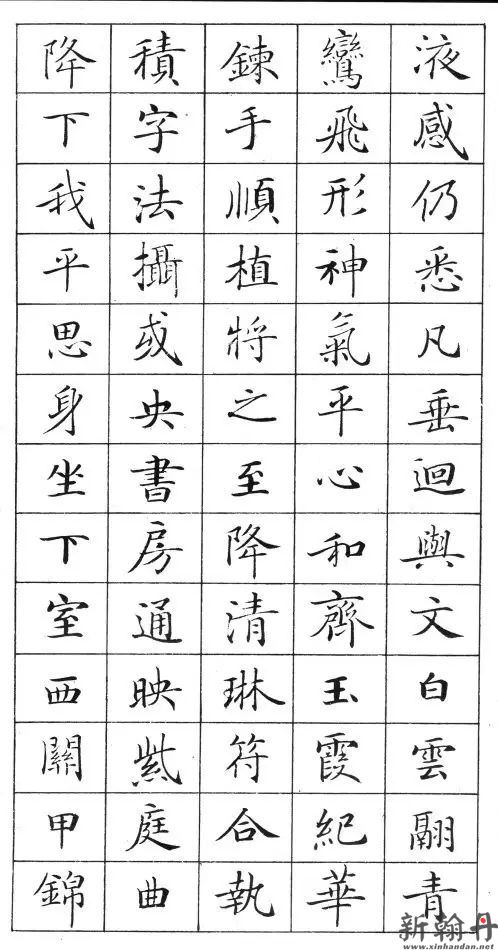 液感仍悉凡垂迴與文白雲翩青
鸞飛形神氣平心和齊玉霞紀華
鍊手順植將之至降清琳符合執
積字法攝或央書房通映紫庭曲
降下我平思身坐下室西關甲錦
新翰丹
www.xinhandan.net